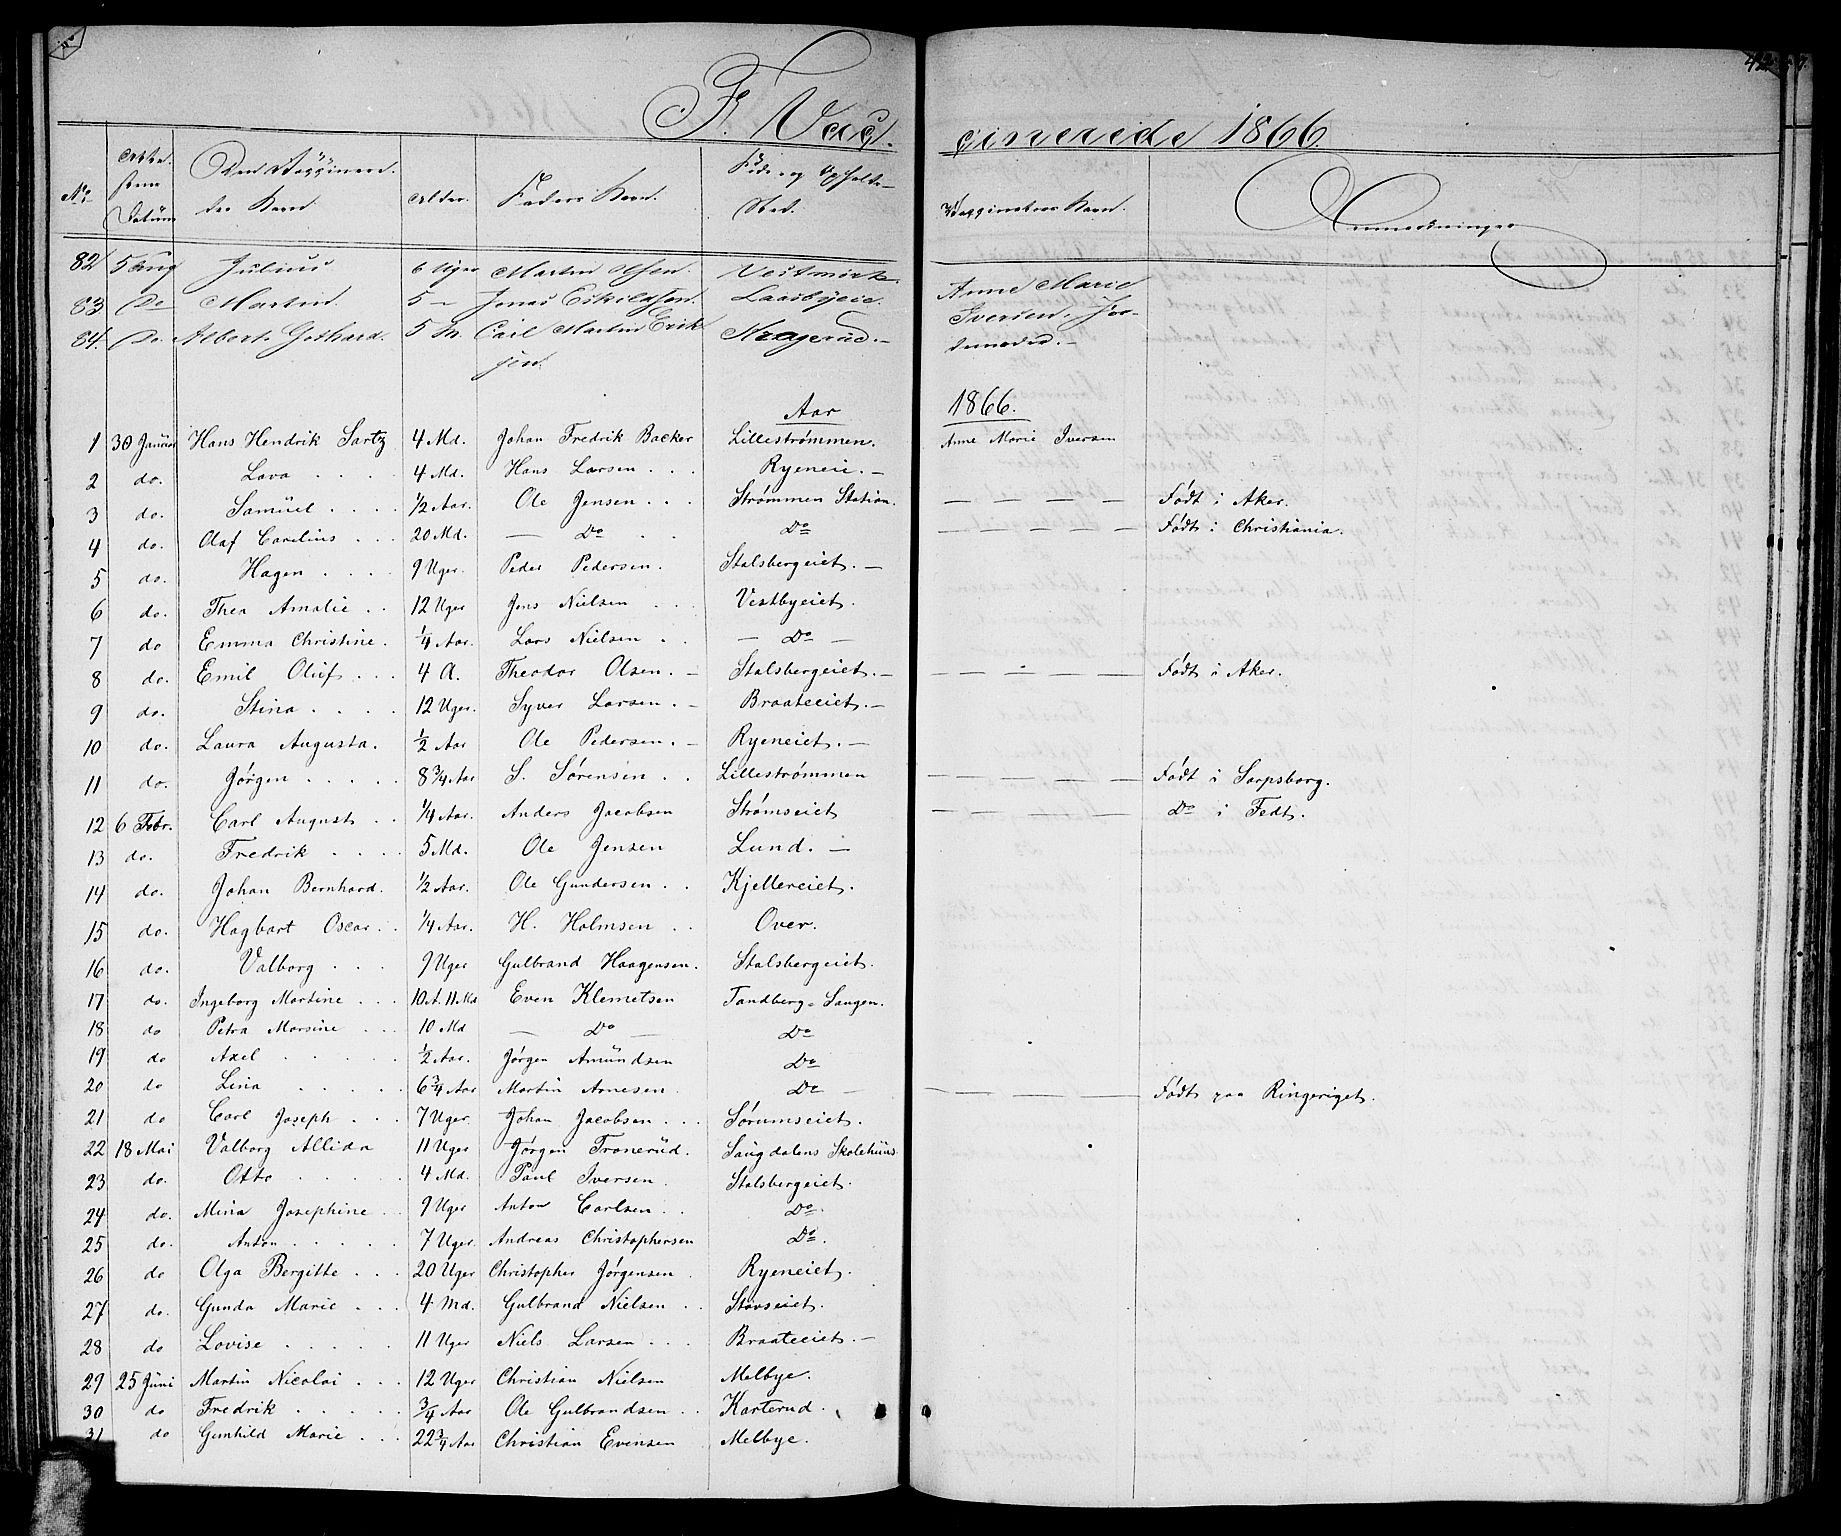 42
F. Vacc. cinerede 1866.
No. Attestens Datum Den Vaccineredes Navn Alder. Faders Navn. Føde- og Opholds-Sted. Vaccinators Navn. Anmerkninger
82 5 Aug Julius 6 Uger Martin Olsen.
83 Do Martin. 5 – Jonas Eskildsen. Anne Marie
84. Do. Albert Gothard. 5 M. Carl Martin Erik Kragerud. Iversen, Jor-
sen. demoder.
Aar 1866.
1 30 Januar Hans Hendrik Sartz 4 Md. Johan Fredrik Backer Lillestrømmen. Anne Marie Iversen
2 do. Lava 4 Md. Hans Larsen Ryeneie.
3 do. Samuel ½ Aar. Ole Jensen Strømmen Station. — — — — Født i Aker.
4 do. Olaf Carelius 20 Md. — Do Do — — — — Født i Christiania.
5 do. Hagen 9 Uger. Peder Pedersen. Stalsbergeiet.
6 do. Thea Amalie 12 Uger Jens Nielsen Vestbyeiet.
7 do Emma Christine. ¼ Aar. Lars Nielsen — Do —
8 do. Emil Oluf 4 A. Theodor Olsen. Stalsbergeiet. — — — — Født i Aker.
9 do. Stina 12 Uger. Syver Larsen. Braateeiet.
10 do. Laura Augusta. ½ Aar Ole Pedersen. Ryeneiet.
11 do. Jørgen 8 ¾ Aar S. Sørensen Lillestrømmen — — — — Født i Sarpsborg.
12 6 Febr. Carl August ¼ Aar. Anders Jacobsen Strømseiet — — — — Do i Fedt.
13 do. Fredrik 5 Md. Ole Jensen Lund.
14 do. Johan Bernhard. ½ Aar. Ole Gundersen Kjellereiet.
15 do. Hagbart Oscar ¼ Aar. H. Holmsen Over.
16 do. Valborg 9 Uger Gulbrand Haagensen. Stalsbergeiet.
17 do. Ingeborg Martine 10 A. 11 Md Even Klemetsen Tandberg-Saugen.
18 do Petra Marsine 10 Md — Do — Do
19 do Axel ½ Aar. Jørgen Amundsen Do
20 do Lina 6 ¾ Aar Martin Arnesen Do — — — — Født paa Ringeriget.
21 do Carl Joseph 7 Uger. Johan Jacobsen Sørumseiet.
22 18 Mai Valborg Allida 11 Uger Jørgen Tronerud. Saugdalens Skolehuus
23 do. Otto 4 Md. Paul Iversen Stalsbergeiet.
24 do. Mina Josephine 9 Uger Anton Carlsen Do.
25 do. Anton 7 Uger. Andreas Christophersen Do.
26 do Olga Bergitte 20 Uger Christopher Jørgensen Ryeneiet.
27 do. Gunda Marie 4 Md. Gulbrand Nielsen Støvseiet.
28 do Lovise 11 Uger Niels Larsen Braateeiet.
29 25 Juni Martin Nicolai 12 Uger Christian Nielsen Melbye.
30 do Fredrik ¾ Aar Ole Gulbrandsen Karterud.
31 do Gunhild Marie 22 ¾ Aar Christian Evensen Melbye.